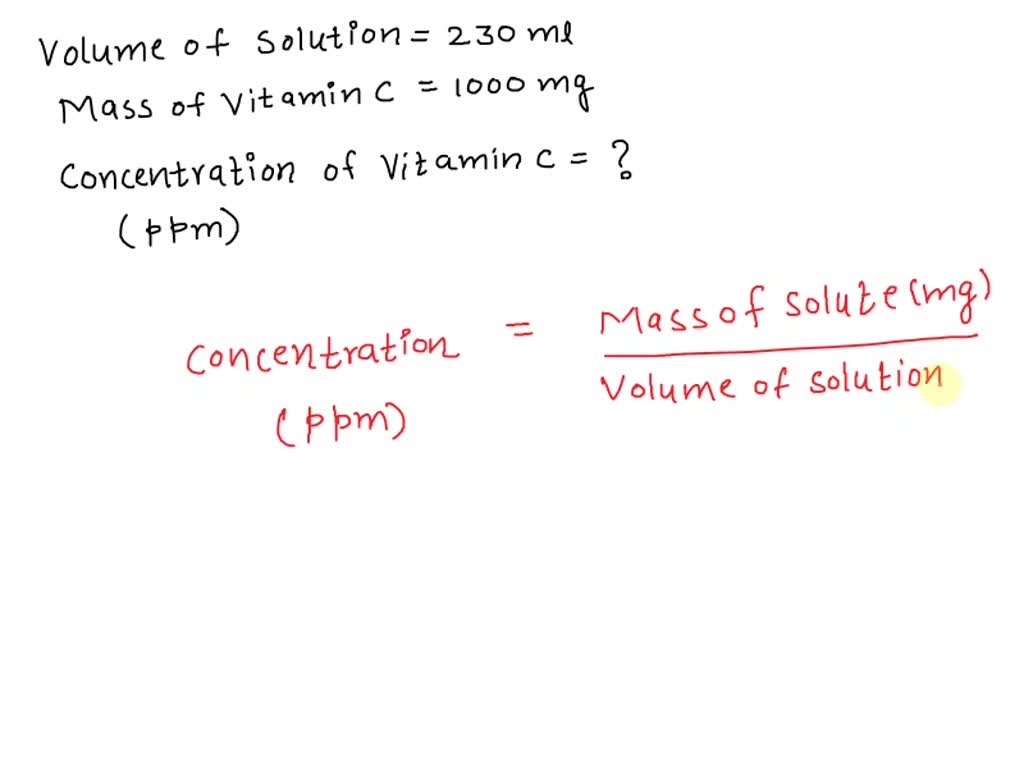 Volume of Solution = 230 ml
Mass of Vitamin C = 1000 mg
Concentration of Vitamin C = ?
(ppm)
Concentration = Mass of Solute (mg)
(ppm) Volume of Solution